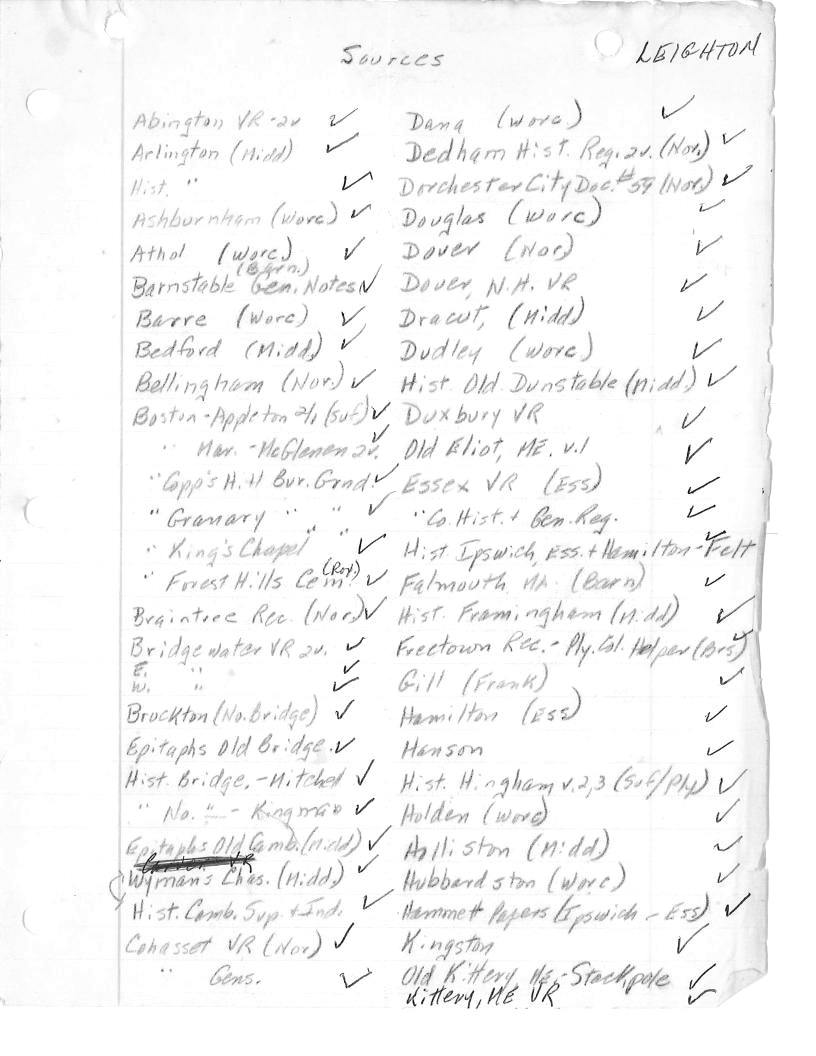 Sources
LEIGHTON
Abington VR - 2v ✓
Arlington (Midd) ✓
Hist. " ✓
Ashburnham (Worc) ✓
Athol (Worc) ✓
(Barn.)
Barnstable Gen. Notes ✓
Barre (Worc) ✓
Bedford (Midd) ✓
Bellingham (Nor.) ✓
Boston - Appleton (Suf) ✓
" Mar. - McGlenen 2v. ✓
" Copp's Hill Bur. Grnd. ✓
" Granary " " ✓
" King's Chapel " ✓
" Forest Hills Cem. (Rox.) ✓
Braintree Rec. (Nor.) ✓
Bridgewater VR 2v. ✓
E. " ✓
W. " ✓
Brockton (No. Bridge) ✓
Epitaphs Old Bridge. ✓
Hist. Bridge. - Mitchell ✓
" No. " - Kingman ✓
Epitaphs Old Camb. (Midd) ✓
Carver VR
Wyman's Chas. (Midd.) ✓
Hist. Camb. Sup. + Ind. ✓
Cohasset VR (Nor) ✓
" Gens. ✓
Dana (Worc.) ✓
Dedham Hist. Reg. 2v. (Nor.) ✓
Dorchester City Doc. #59 (Nor.) ✓
Douglas (Worc) ✓
Dover (Nor) ✓
Dover, N.H. VR ✓
Dracut, (Midd) ✓
Dudley (Worc) ✓
Hist. Old Dunstable (Midd) ✓
Duxbury VR ✓
Old Eliot, ME. v.1 ✓
Essex VR (Ess) ✓
" Co. Hist. + Gen. Reg. ✓
Hist. Ipswich, Ess. + Hamilton - Felt ✓
Falmouth, MA. (Barn) ✓
Hist. Framingham (Midd) ✓
Freetown Rec. - Ply. Col. Helper (Brs) ✓
Gill (Frank) ✓
Hamilton (Ess) ✓
Hanson ✓
Hist. Hingham v. 2, 3 (Suf/Ply) ✓
Holden (Worc) ✓
Holliston (Midd) ✓
Hubbardston (Worc) ✓
Hammett Papers (Ipswich - Ess) ✓
Kingston ✓
Old Kittery, ME. - Stackpole ✓
Kittery, ME VR ✓